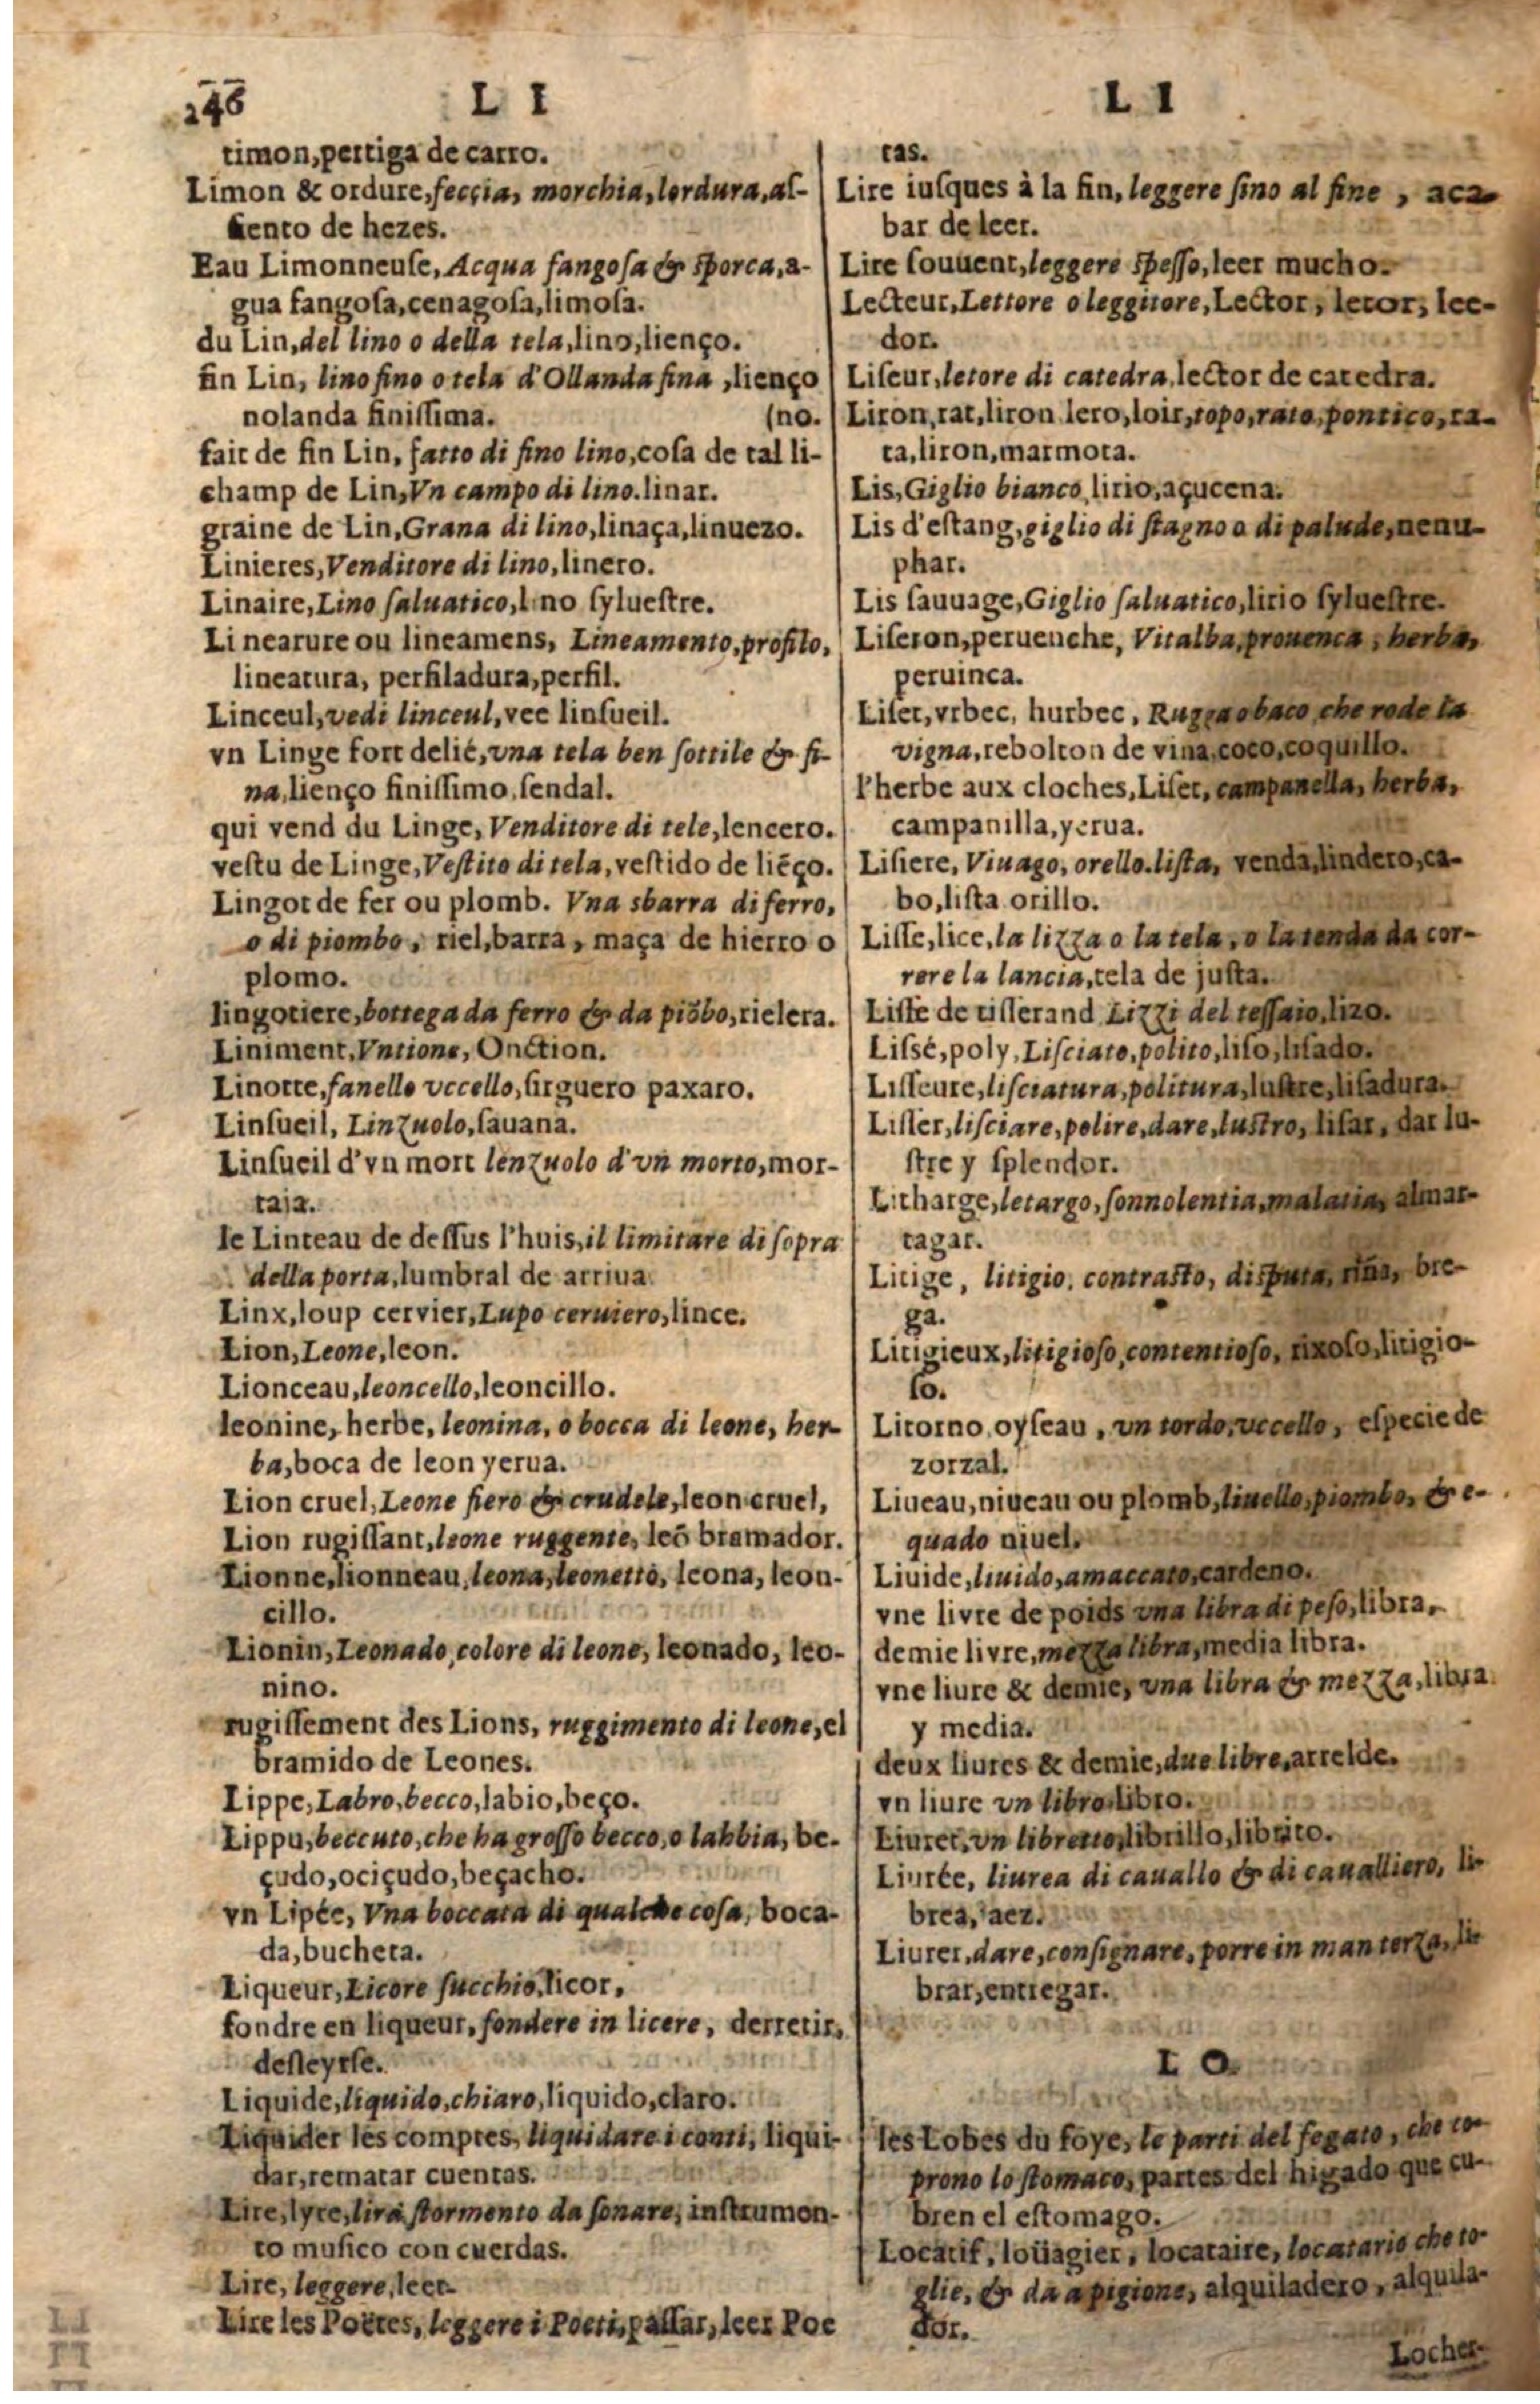 246
L I
timon,pertiga de carro.
Limon & ordure,feccia, morchia,lordura,aſ-
ſiento de hezes.
Eau Limonneuſe, Acqua fangoſa & ſporca,a-
gua fangoſa,cenagoſa,limoſa.
du Lin,del lino o della tela,lino,lienço.
fin Lin, lino fino o tela d'Ollanda fina ,lienço
nolanda finiſſima. (no.
fait de fin Lin, fatto di fino lino,coſa de tal li-
champ de Lin,Vn campo di lino.linar.
graine de Lin,Grana di lino,linaça,linuezo.
Linieres,Venditore di lino,linero.
Linaire,Lino ſaluatico,lino ſylueſtre.
Linearure ou lineamens, Lineamento,profilo,
lineatura, perfiladura,perfil.
Linceul,vedi linceul,vee linſueil.
vn Linge fort delié,vna tela ben ſottile & fi-
na,lienço finiſſimo,ſendal.
qui vend du Linge, Venditore di tele,lencero.
veſtu de Linge,Veſtito di tela,veſtido de liẽço.
Lingot de fer ou plomb. Vna sbarra di ferro,
o di piombo, riel,barra, maça de hierro o
plomo.
lingotiere,bottega da ferro & da piõbo,rielera.
Liniment,Vntione, Onction.
Linotte,fanello vccello,ſirguero paxaro.
Linſueil, Linzuolo,ſauana.
Linſueil d'vn mort lenzuolo d'vn morto,mor-
taja.
le Linteau de deſſus l'huis,il limitare di ſopra
della porta,lumbral de arriua.
Linx,loup cervier,Lupo ceruiero,lince.
Lion,Leone,leon.
Lionceau,leoncello,leoncillo.
leonine, herbe, leonina, o bocca di leone, her-
ba,boca de leon yerua.
Lion cruel,Leone fiero & crudele,leon cruel,
Lion rugiſſant,leone ruggente, leõ bramador.
Lionne,lionneau,leona,leonetto, leona, leon-
cillo.
Lionin,Leonado,colore di leone, leonado, leo-
nino.
rugiſſement des Lions, ruggimento di leone,el
bramido de Leones.
Lippe,Labro,becco,labio,beço.
Lippu,beccuto,che ha groſſo becco,o labbia, be-
çudo,ociçudo,beçacho.
vn Lipée, Vna boccata di qualche coſa, boca-
da,bucheta.
Liqueur,Licore ſucchio,licor,
fondre en liqueur, fondere in licore, derretir,
deſleyrſe.
Liquide,liquido,chiaro,liquido,claro.
Liquider les comptes, liquidare i conti, liqui-
dar,rematar cuentas.
Lire,lyre,lira ſtormento da ſonare, inſtrumen-
to muſico con cuerdas.
Lire, leggere,leer.
Lire les Poëtes, leggere i Poeti,paſſar,leer Poe
L I
tas.
Lire iuſques à la fin, leggere ſino al fine , aca-
bar de leer.
Lire ſouuent,leggere ſpeſſo,leer mucho.
Lecteur,Lettore o leggitore,Lector, letor, lee-
dor.
Liſeur,letore di catedra,lector de catedra.
Liron,rat,liron lero,loir,topo,rato,pontico,ra-
ta,liron,marmota.
Lis,Giglio bianco,lirio,açucena.
Lis d'eſtang,giglio di ſtagno o di palude,nenu-
phar.
Lis ſauuage,Giglio ſaluatico,lirio ſylueſtre.
Liſeron,peruenche, Vitalba,prouenca, herba,
peruinca.
Liſet,vrbec, hurbec, Ruzza o baco che rode la
vigna,rebolton de vina,coco,coquillo.
l'herbe aux cloches,Liſet, campanella, herba,
campanilla,yerua.
Liſiere, Viuago, orello.liſta, venda,lindero,ca-
bo,liſta orillo.
Liſſe,lice,la lizza o la tela, o la tenda da cor-
rere la lancia,tela de juſta.
Liſſe de tiſſerand Lizzi del teſſaio,lizo.
Liſsé,poly,Liſciato,polito,liſo,liſado.
Liſſeure,liſciatura,politura,luſtre,liſadura.
Liſſer,liſciare,polire,dare,luſtro, liſar, dar lu-
ſtre y ſplendor.
Litharge,letargo,ſonnolentia,malatia, almar-
tagar.
Litige, litigio, contraſto, diſputa, riña, bre-
ga.
Litigieux,litigioſo,contentioſo, rixoſo,litigio-
ſo.
Litorno oyſeau, vn tordo,vccello, eſpecie de
zorzal.
Liueau,niueau ou plomb,liuello,piombo, & e-
quado niuel.
Liuide,liuido,amaccato,cardeno.
vne livre de poids vna libra di peſo,libra,
demie livre,mezza libra,media libra.
vne liure & demie, vna libra & mezza,libra
y media.
deux liures & demie,due libre,arrelde.
vn liure vn libro,libro.
Liuret,vn libretto,librillo,librito.
Liurée, liurea di cauallo & di caualliero, li-
brea, aez.
Liurer,dare,conſignare, porre in man terza,li-
brar,entregar.
L O
les Lobes du foye, le parti del fegato, che co-
prono lo ſtomaco, partes del higado que cu-
bren el eſtomago.
Locatif, loüagier, locataire, locatario che to-
glie, & da a pigione, alquiladero, alquila-
dor.
Locher